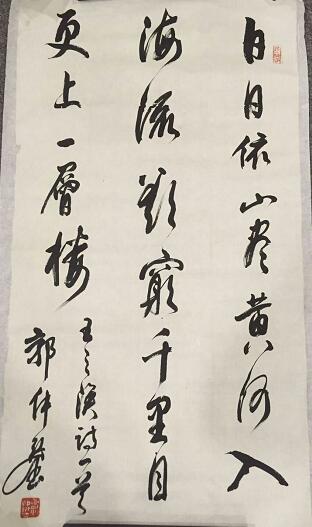 白日依山尽黄河入
海流欲窮千里目
更上一層楼
王之涣诗一首
郭